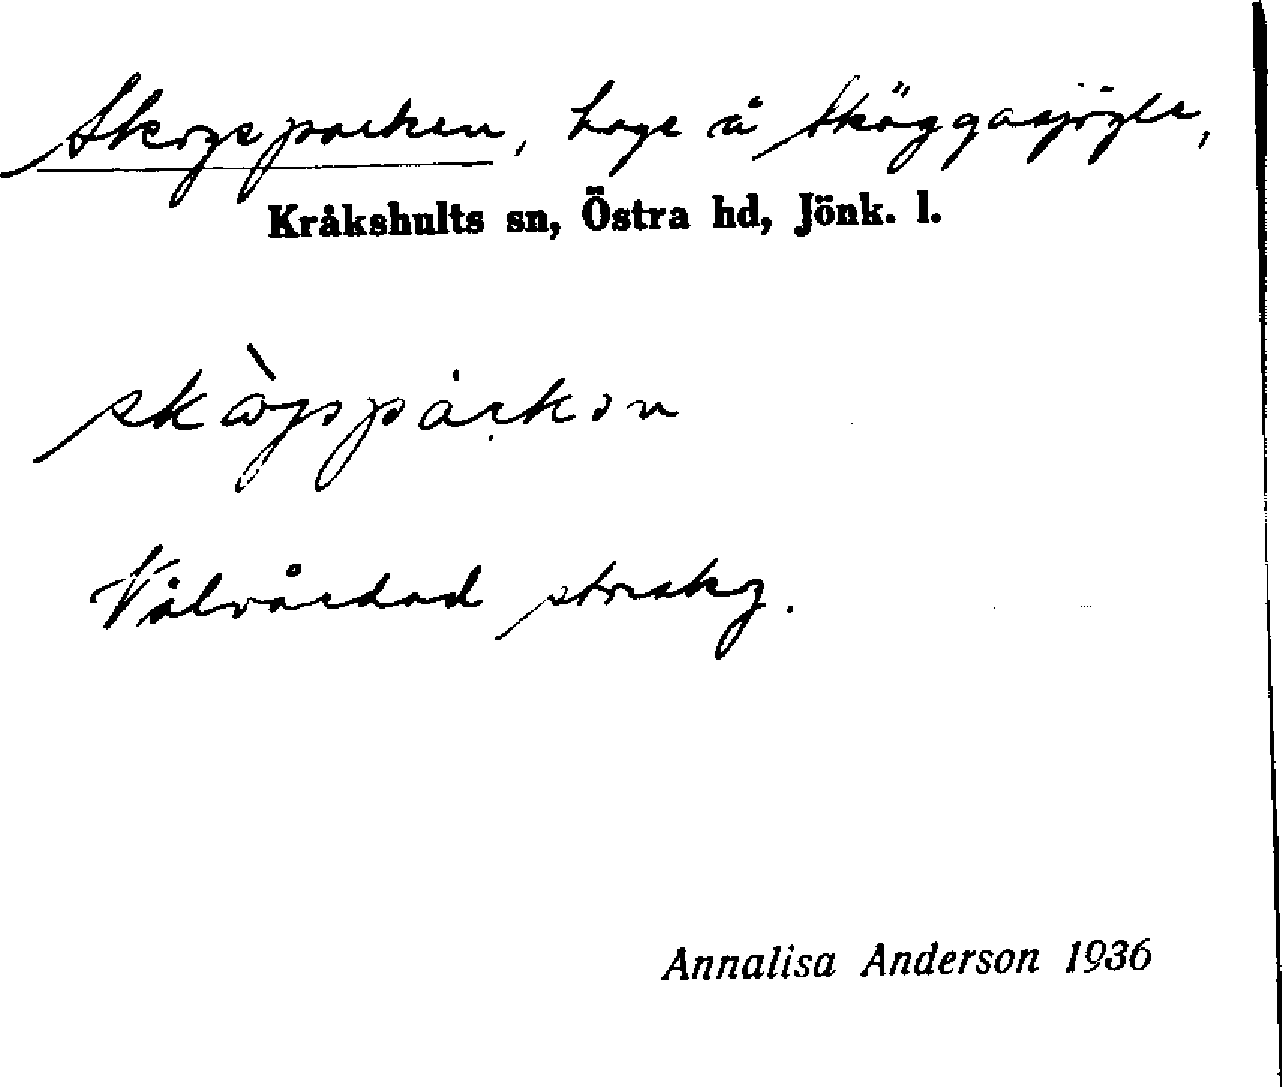 Skogsparken, hage å Sköggasjögle,
Kråkshults sn, Östra hd, Jönk. l.
skògspárkən
Välvårdad
Annalisa Anderson 1936